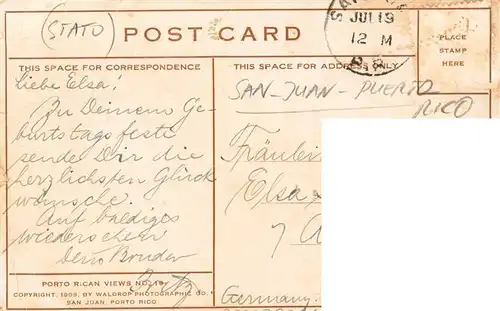 (STATO)
POST CARD
JUL 19
12 M
PLACE
STAMP
HERE
THIS SPACE FOR CORRESPONDENCE
THIS SPACE FOR ADDRESS ONLY
SAN-JUAN-PUERTO
RICO
Liebe Elsa!
Zu Deinem Ge-
burtstagsfeste
sende Dir die
herzlichsten Glück
wünsche.
Auf baldiges
Wiedersehen
Dein Bruder
Fritz
Fräulein
Elsa
7
Germany.
PORTO RICAN VIEWS NO. 19
COPYRIGHT, 1909, BY WALDROP PHOTOGRAPHIC CO.
SAN JUAN, PORTO RICO